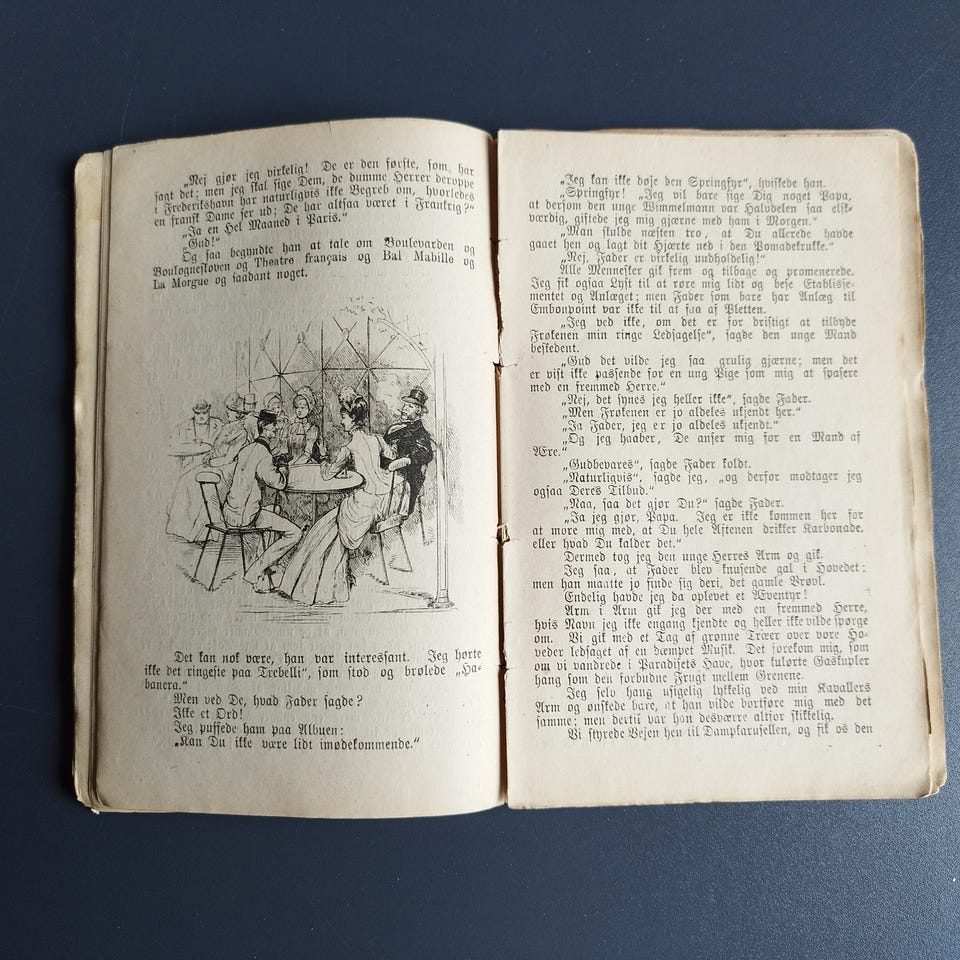 „Nej gjør jeg virkelig! De er den første, som har
sagt det; men jeg skal sige Dem, de dumme Herrer deroppe
i Frederikshavn har naturligvis ikke Begreb om, hvorledes
en fransk Dame ser ud; De har altsaa været i Frankrig?“
„Ja en Hel Maaned i Paris.“
„Gud!“
Og saa begyndte han at tale om Boulevarden og
Boulogneskoven og Theatre français og Bal Mabille og
La Morgue og saadant noget.
Det kan nok være, han var interessant. Jeg hørte
ikke det ringeste paa Trebelli“, som stod og brølede „Ha-
banera.“
Men ved De, hvad Fader sagde?
Ikke et Ord!
Jeg puffede ham paa Albuen:
„Kan Du ikke være lidt imødekommende.“
„Jeg kan ikke døje den Springfyr“, hviskede han.
„Springfyr! „Jeg vil bare sige Dig noget Papa,
at dersom den unge Wimmelmann var Halvdelen saa elsk-
værdig, giftede jeg mig gjærne med ham i Morgen.“
„Man skulde næsten tro, at Du allerede havde
gaaet hen og lagt dit Hjærte ned i den Pomadekrukke.“
„Nej, Fader er virkelig uudholdelig!“
Alle Mennesker gik frem og tilbage og promenerede.
Jeg fik ogsaa Lyst til at røre mig lidt og bese Etablisse-
mentet og Anlæget; men Fader som bare har Anlæg til
Embonpoint var ikke til at faa af Pletten.
„Jeg ved ikke, om det er for dristigt at tilbyde
Frøkenen min ringe Ledsagelse“, sagde den unge Mand
beskedent.
„Gud det vilde jeg saa grulig gjærne; men det
er vist ikke passende for en ung Pige som mig at spasere
med en fremmed Herre.“
„Nej, det synes jeg heller ikke“, sagde Fader.
„Men Frøkenen er jo aldeles ukjendt her.“
„Ja Fader, jeg er jo aldeles ukjendt.“
„Og jeg haaber, De anser mig for en Mand af
Ære.“
„Gudbevares“, sagde Fader koldt.
„Naturligvis“, sagde jeg, „og derfor modtager jeg
ogsaa Deres Tilbud.“
„Naa, saa det gjør Du?“ sagde Fader.
„Ja jeg gjør, Papa. Jeg er ikke kommen her for
at more mig med, at Du hele Aftenen drikker Karbonade,
eller hvad Du kalder det.“
Dermed tog jeg den unge Herres Arm og gik.
Jeg saa, at Fader blev knusende gal i Hovedet;
men han maatte jo finde sig deri, det gamle Brøvl.
Endelig havde jeg da oplevet et Æventyr!
Arm i Arm gik jeg der med en fremmed Herre,
hvis Navn jeg ikke engang kjendte og heller ikke vilde spørge
om. Vi gik med et Tag af grønne Træer over vore Ho-
veder ledsaget af en dæmpet Musik. Det forekom mig, som
om vi vandrede i Paradisets Have, hvor kulørte Gaskupler
hang som den forbudne Frugt mellem Grenene.
Jeg selv hang usigelig lykkelig ved min Kavallers
Arm og ønskede bare, at han vilde bortføre mig med det
samme; men dertil var han desværre altfor skikkelig.
Vi styrede Vejen hen til Dampkarusellen, og fik os den